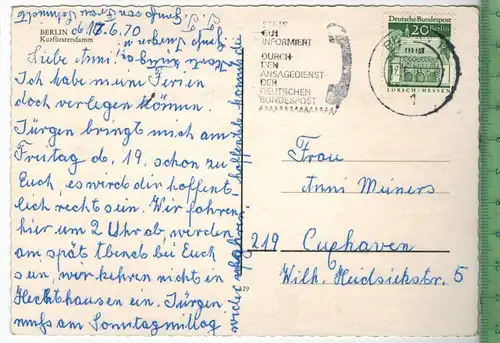 BERLIN
Kurfürstendamm
d. 17.6.70
Liebe Anni!
Ich habe meine Ferien
doch verlegen können.
Jürgen bringt mich am
Freitag d. 19. schon zu
Euch, es wird dir hoffent
lich recht sein. Wir fahren
hier um 2 Uhr ab, werden
am späten Abend bei Euch
sein, wir kehren nicht in
Hechthausen ein. Jürgen
muß am Sonntagmittag
wieder abfahren, hoffentlich kommt die
STETS
GUT
INFORMIERT
DURCH
DEN
ANSAGEDIENST
DER
DEUTSCHEN
BUNDESPOST
1
Deutsche Bundespost
20 Berlin
LORSCH/HESSEN
Frau
Anni Meiners
219 Cuxhaven
Wilh. Heidsiekstr. 5